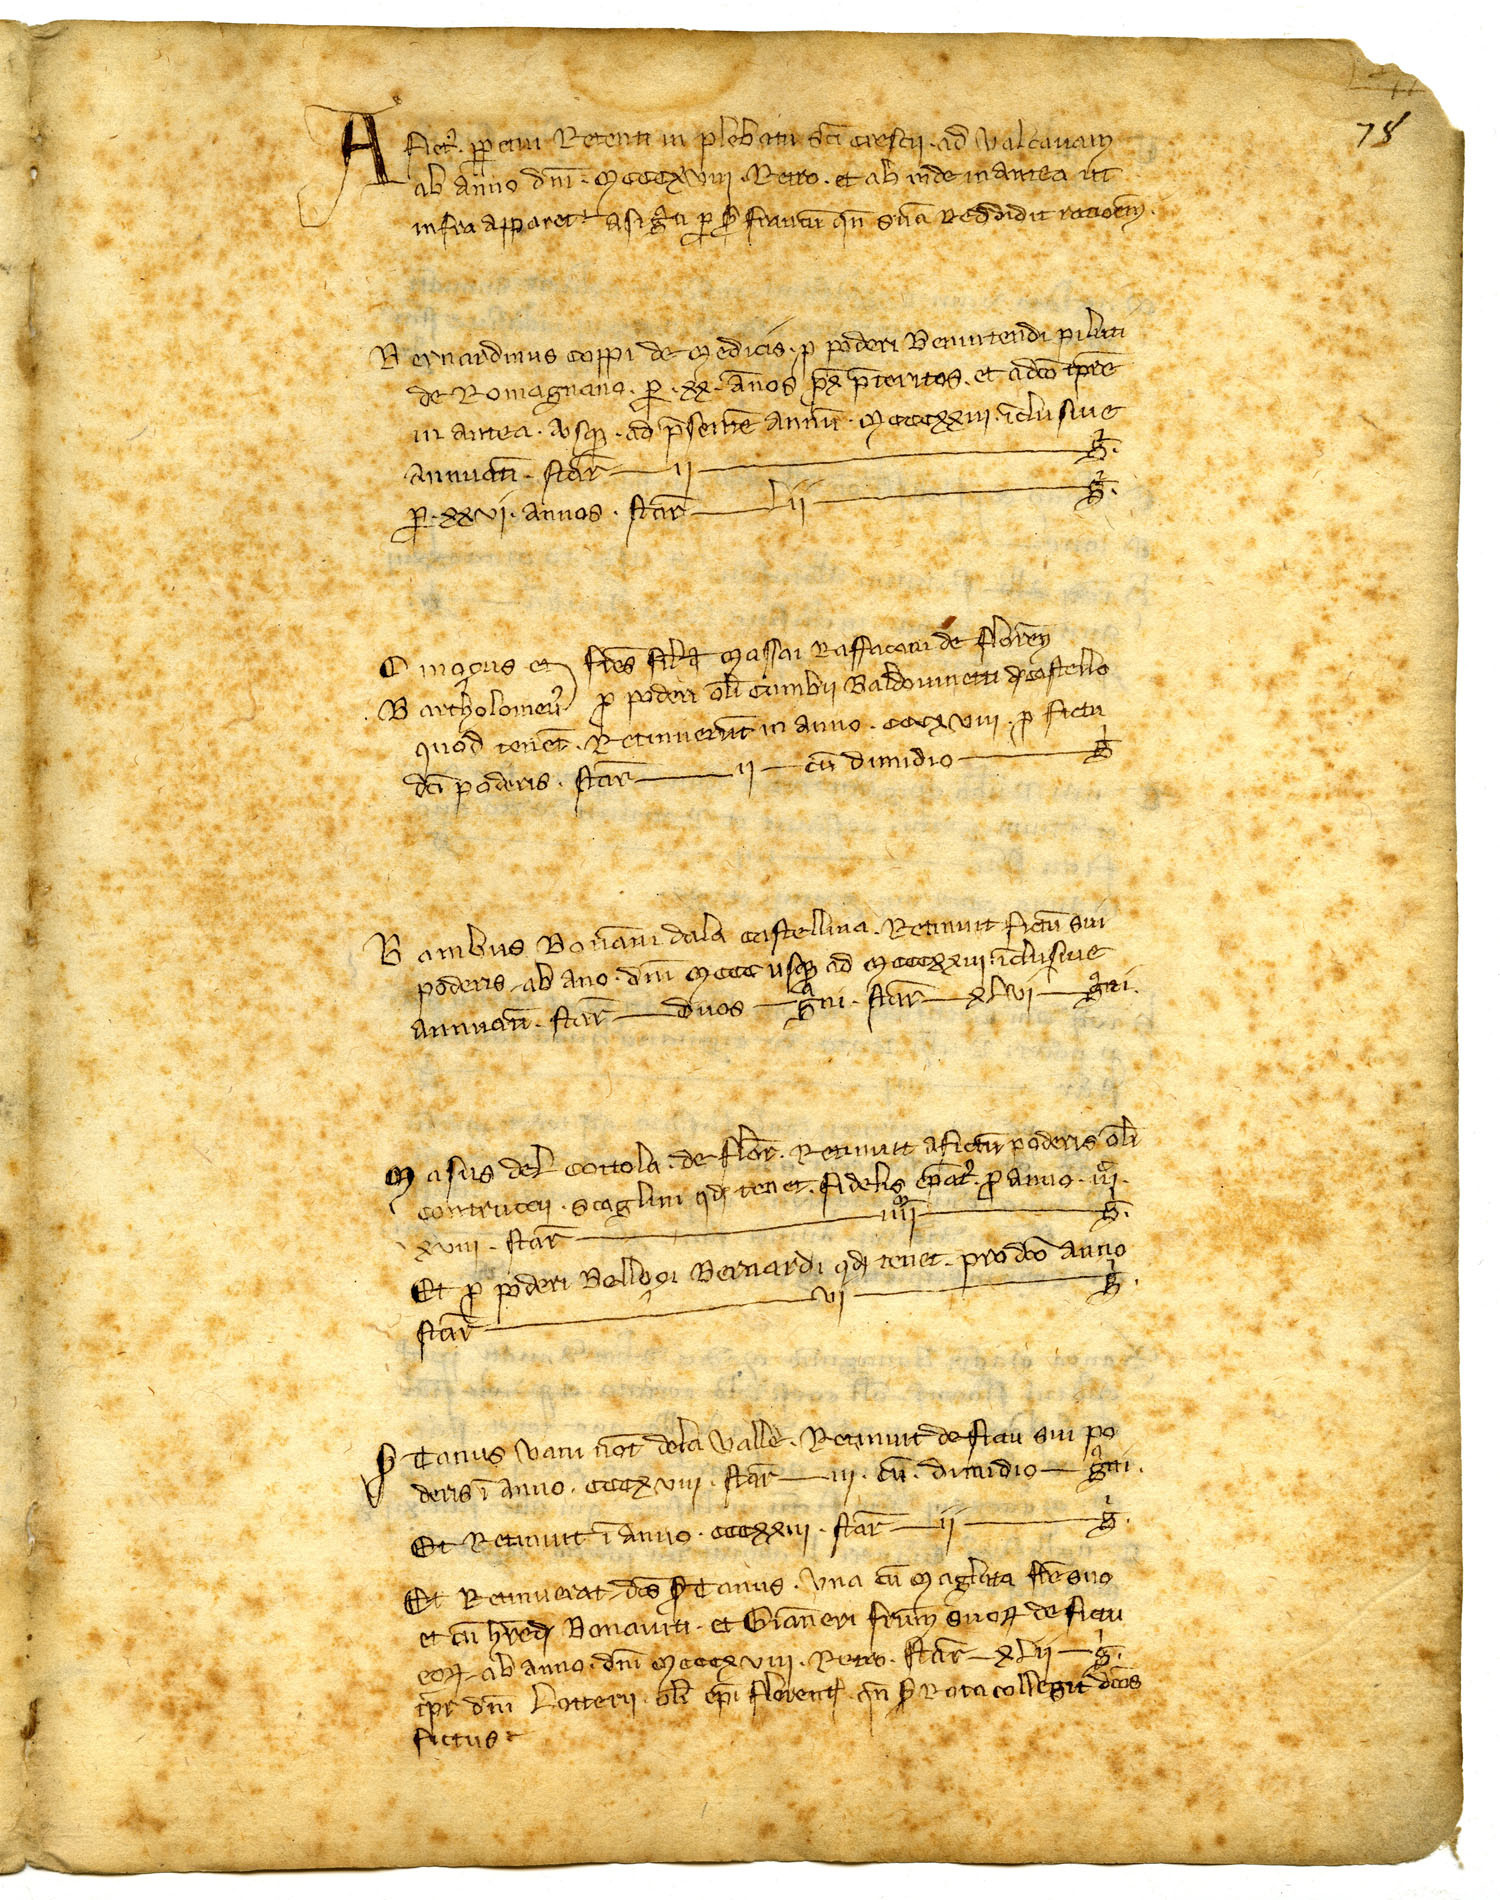 78
Afict᷒. ꝑpetui Retenti in plebatu sc̄i crescii. ad valcavam
ab anno dnī. Mcccxviii. Retro. et ab inde in antea ut
infra apparet asigti p S frantū qn̄ suā Reddidit ratioēm.
Bernardinus coppi de Medicis. p poderi Benintendi pilati
de Romagnano. ꝑ. xx. ānos p̄x p̄teritos. et
in antea. usqꝫ. ad p̄sentē annū. Mcccxxiii. īclusive
annuatī. star̄ — ii — ḡ.
ꝑ. xxvi. annos. star̄ — Lii — ḡ.
et frēs filii Massai Raffacani de florēn
Bartholomeu᷒ ꝑ poderi olī Cambii Baldovinetti d castello
quod tenēt. Retinuerūt in anno. cccxviii. ꝑ fictu
dc̄i poderis. star̄ — ii — cū dimidio — ḡ
Bambus Bonāni dala castellina. Retinuit fictū sui
poderis ab ano. dnī Mccc usqꝫ ad Mcccxxiii. īclusive
annuatī. star̄ — duos — g̊ni. star̄ — xLvi — g̊ni.
Masus del Cottola. de flōr. Retinuit afictū poderis olī
contrucii. scaglini qd tenet. fidelis ep̄at᷒. ꝑ anno. iii.
xviii. star̄ — iiii — ḡ.
Et ꝑ poderi Bellozi Bernardi qd tenet. pro dc̄o anno
star̄ — vi — ḡ.
S Tanus vani not̄ dela valle. Retinuit de fictu sui po
deris ī anno. cccxviii. star̄ — iii. cū. dimidio — g̊ni.
Et Retinuit ī anno. cccxxiii. star̄ — ii — ḡ.
Et Retinuerat dc̄s S Tanus. una cū Maglata frē suo
et cū hred Bonaviti. et Gianeri frūm suoꝝ de fictu
eoꝝ ab anno. dnī Mcccxviii. Retro. star̄ — xLii — ḡ.
tpr dnī Lotterii. olī ep̄i florent. qn̄ S Rota collegit dc̄os
fictus